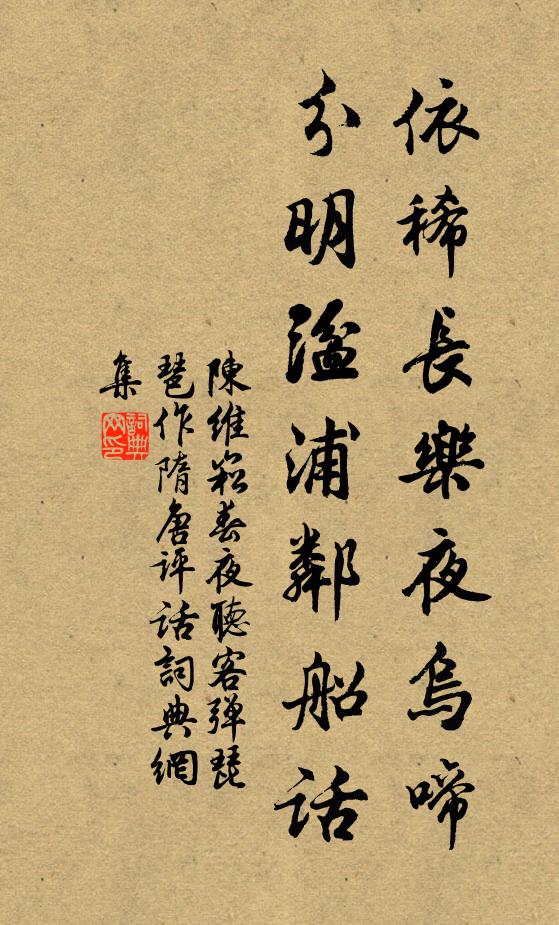 依稀長樂夜烏啼
分明湓浦鄰船話
陳維崧春夜聽客彈琵
琶作隋唐評話詞典網
集
詞典網印